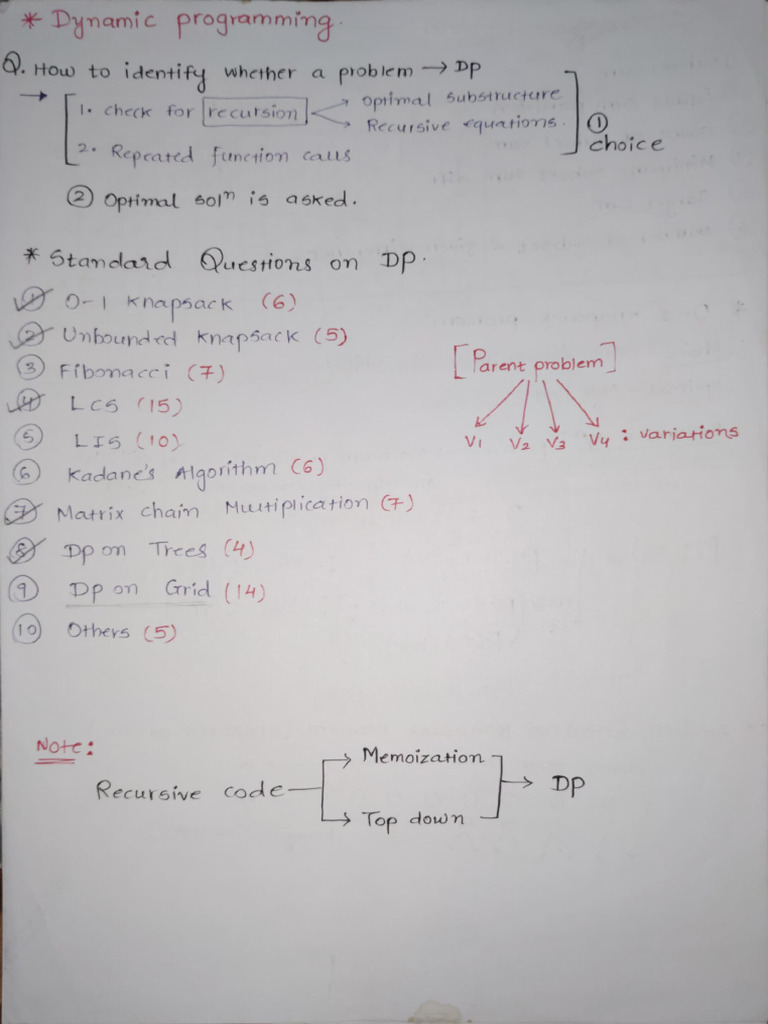 * Dynamic programming.
Q. How to identify whether a problem → DP
→ 1. check for recursion → optimal substructure
→ Recursive equations.
2. Repeated function calls
① choice
② Optimal solⁿ is asked.
* Standard Questions on DP.
① 0-1 Knapsack (6)
② Unbounded Knapsack (5)
③ Fibonacci (7)
④ LCS (15)
⑤ LIS (10)
⑥ Kadane's Algorithm (6)
⑦ Matrix chain Multiplication (7)
⑧ Dp on Trees (4)
⑨ Dp on Grid (14)
⑩ Others (5)
[Parent problem]
V1 V2 V3 V4 : variations
Note:
Recursive code → Memoization → DP
→ Top down